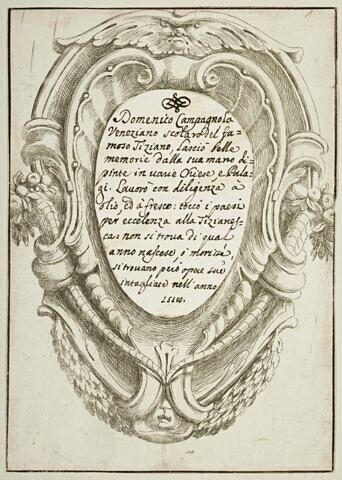 Domenico Campagnola
Veneziano scolaro del fa=
moso Tiziano, lasciò belle
memorie dalla sua mano di=
pinte in varie Chiese e Pala=
gi. Lavorò con diligenza à
olio, ed à fresco: toccò i paesi
per eccelenza alla Tizianes=
ca: non si trova di qual
anno nascese, ò morisse,
si trovano però opere sue
intagliate nell'anno
1518.